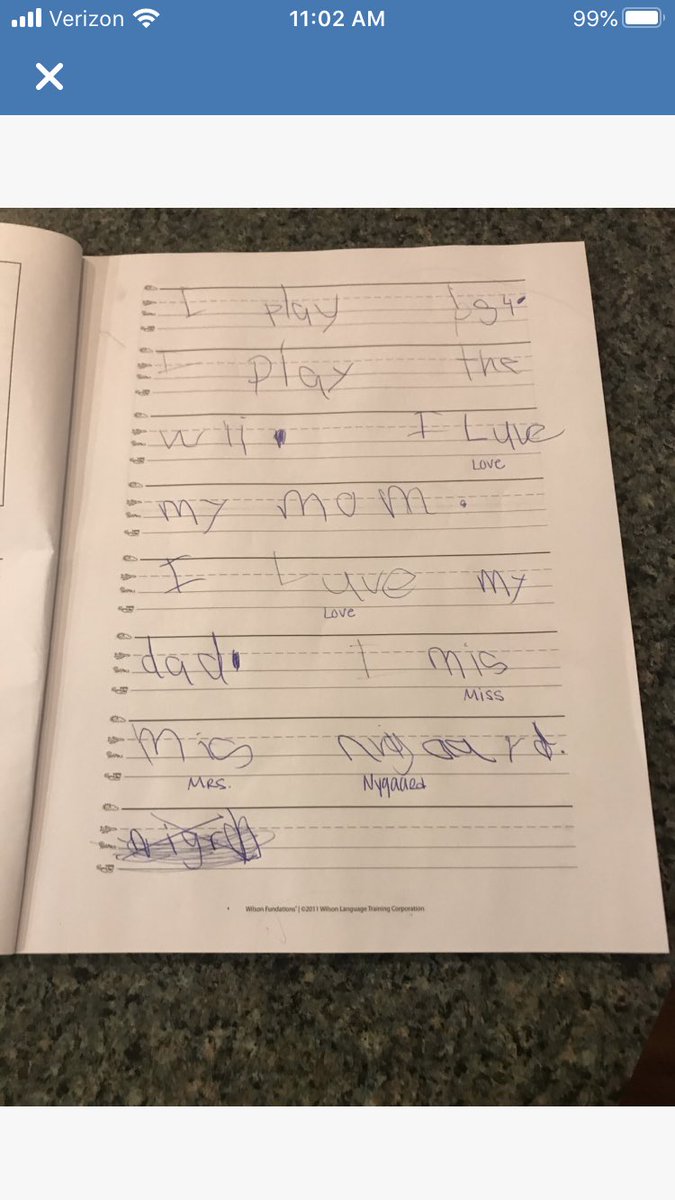 Verizon 11:02 AM 99%
I play ps4.
I play the
wii. I Luve
Love
my mom.
I Luve my
Love
dad. I mis
Miss
Mis
Mrs. Nygaard
Wilson Fundations® | ©2011 Wilson Language Training Corporation